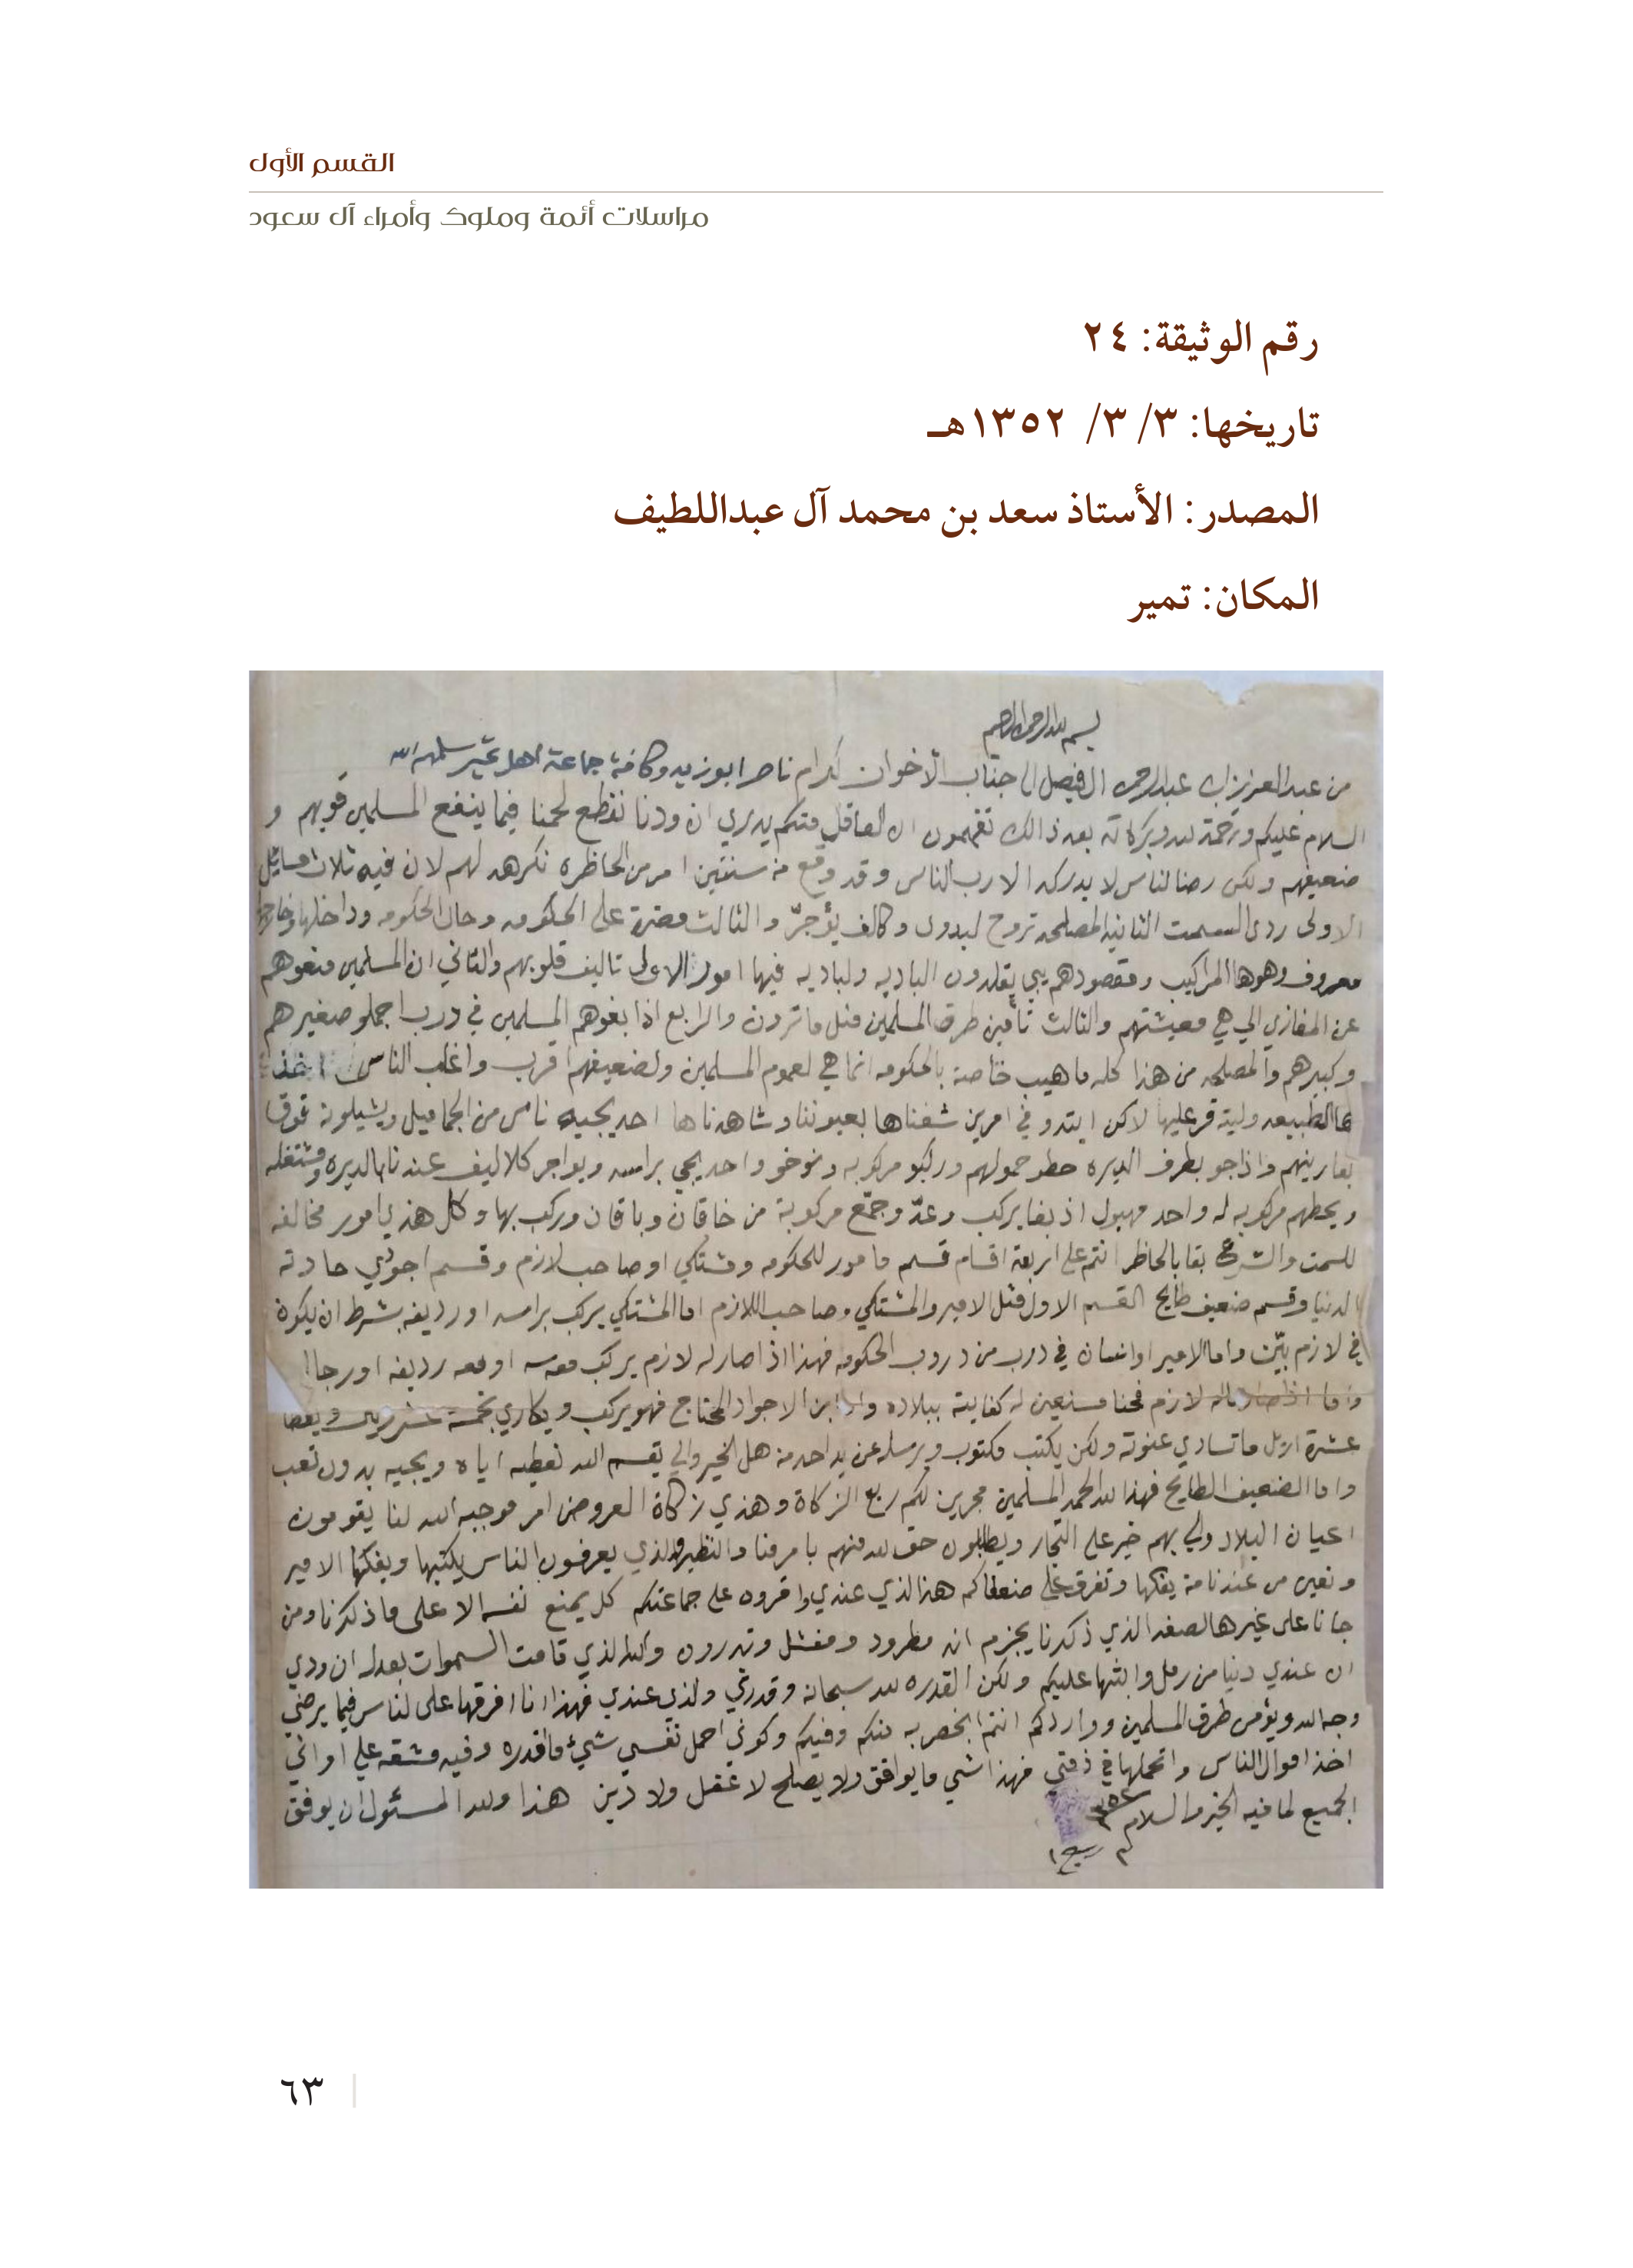 القسم الأول
مراسلات أئمة وملوك وأمراء آل سعود
رقم الوثيقة: ٢٤
تاريخها: ٣/ ٣/ ١٣٥٢هـ
المصدر: الأستاذ سعد بن محمد آل عبداللطيف
المكان: تمير
بسم الله الرحمن الرحيم
من عبدالعزيز ابن عبدالرحمن ال فيصل الى جناب الأخوان لكرام ناصر ابوزيد وكافة جماعة اهل تمير سلمهم الله
السلام عليكم ورحمة الله وبركاته بعد ذالك تفهمون ان العاقل منكم يدري ان ودنا نقطع لحمنا فيما ينفع المسلمين قويهم و
ضعيفهم ولكن رضا لناس لا يدركه الا رب الناس وقد وقع من سنتين امر من الحاظره نكرهه لهم لان فيه ثلاث مسائيل
الاولى ردى السمت الثانيه المصلحه تروح لبدون وكالف يؤجرّ والثالث مضرة على الحكومه وحال الحكومه وداخلها وخارجها
معروف وهو هالمراكيب ومقصودهم يبي يقلدون الباديه ولباديه فيها امور الاولى تاليف قلوبهم والثاني ان المسلمين منعوهم
عن المغازي الي هي معيشتهم والثالث تأمين طرق المسلمين مثل ماترون والرابع اذا بغوهم المسلمين في درب اجملو صغيرهم
وكبيرهم والمصلحه من هذا كله ماهيب خاصة بالحكومه انما هي لعموم المسلمين ولضعيفهم اقرب واغلب الناس
هالطبيعه وليته قر عليها لاكن ابتدو في امرين شفناها بعيوننا وشاهدناها احد يجيه ناس من الجماميل ويشيلونه فوق
بعارينهم واذا جو بطرف الديره حطو حمولهم وركبو مركوبه ونوخو واحد يجي براسه ويواجر كلاليف عندنا بالديره ومشتغله
ويحطهم مركوبه له واحد مهبول اذ بغا يركب وعدّ وجمّع مركوبة من خاقان وباقان وركب بها وكل هذي امور مخالفه
للسمت والشرع بقا بالحاظر انتم على اربعة اقسام قسم مامور للحكومه ومشتكي او صاحب لازم وقسم اجودي حادته
الدنيا وقسم ضعيف طايح القسم الاول مثل الامير والمشتكي وصاحب اللازم اما المشتكي يركب براسه او رديفه بشرط ان يكون
في لازم بيّن واما الامير او انسان في درب من دروب الحكومه فهذا اذا صار له لازم يركب معه او معه رديفه او رجال
واما اذا صار ماله لازم فحنا مسنعين له كفايته ببلاده واما ابن الاجواد المحتاج فهو يركب ويكاري بخمسة عشر ريال ويعطا
عشرة اريل ماتساوي عنوته ولكن يكتب مكتوب ويرسله عن يد احد من هل الخير والي يقسم الله نعطيه اياه ويجيه بدون تعب
واما الضعيف الطايح فهذا لله الحمد المسلمين مجرين لكم ربع الزكاة وهذي زكاة العروض امر موجبه الله لنا يقومون
اعيان البلاد ولي بهم خير على التجار ويطلبون حق الله منهم بامرفنا والنظير ولذي يعرفون الناس يكتبها ويفكها الامير
ونعين من عندنا من يفكها وتفرق على ضعفاكم هذا لذي عندي واقروه على جماعتكم كل يمنع نفسه الا على ماذكرنا ومن
جانا على غير هالصفه الذي ذكرنا يجزم انه مطرود ومفشل وتدرون والله الذي قامت السموات بعدله ان ودي
ان عندي دنيا من رمل وابثها عليكم ولكن القدره لله سبحانه وقدرتي ولذي عندي فهذا انا افرقها على لناس فيما يرضي
وجه الله ويؤمن طرق المسلمين وواردكم انتم ابخص به منكم وفيكم وكوني احمل نفسي شيء ما اقدره وفيه مشقه علي او اني
اخذ اموال الناس واتحملها في ذمتي فهذا شي مايوافق ولا يصلح لا عقل ولا دين هذا ولله المسئول ان يوفق
الجميع لما فيه الخير والسلام
٣٥٢
٣ ربيع ١
٦٣